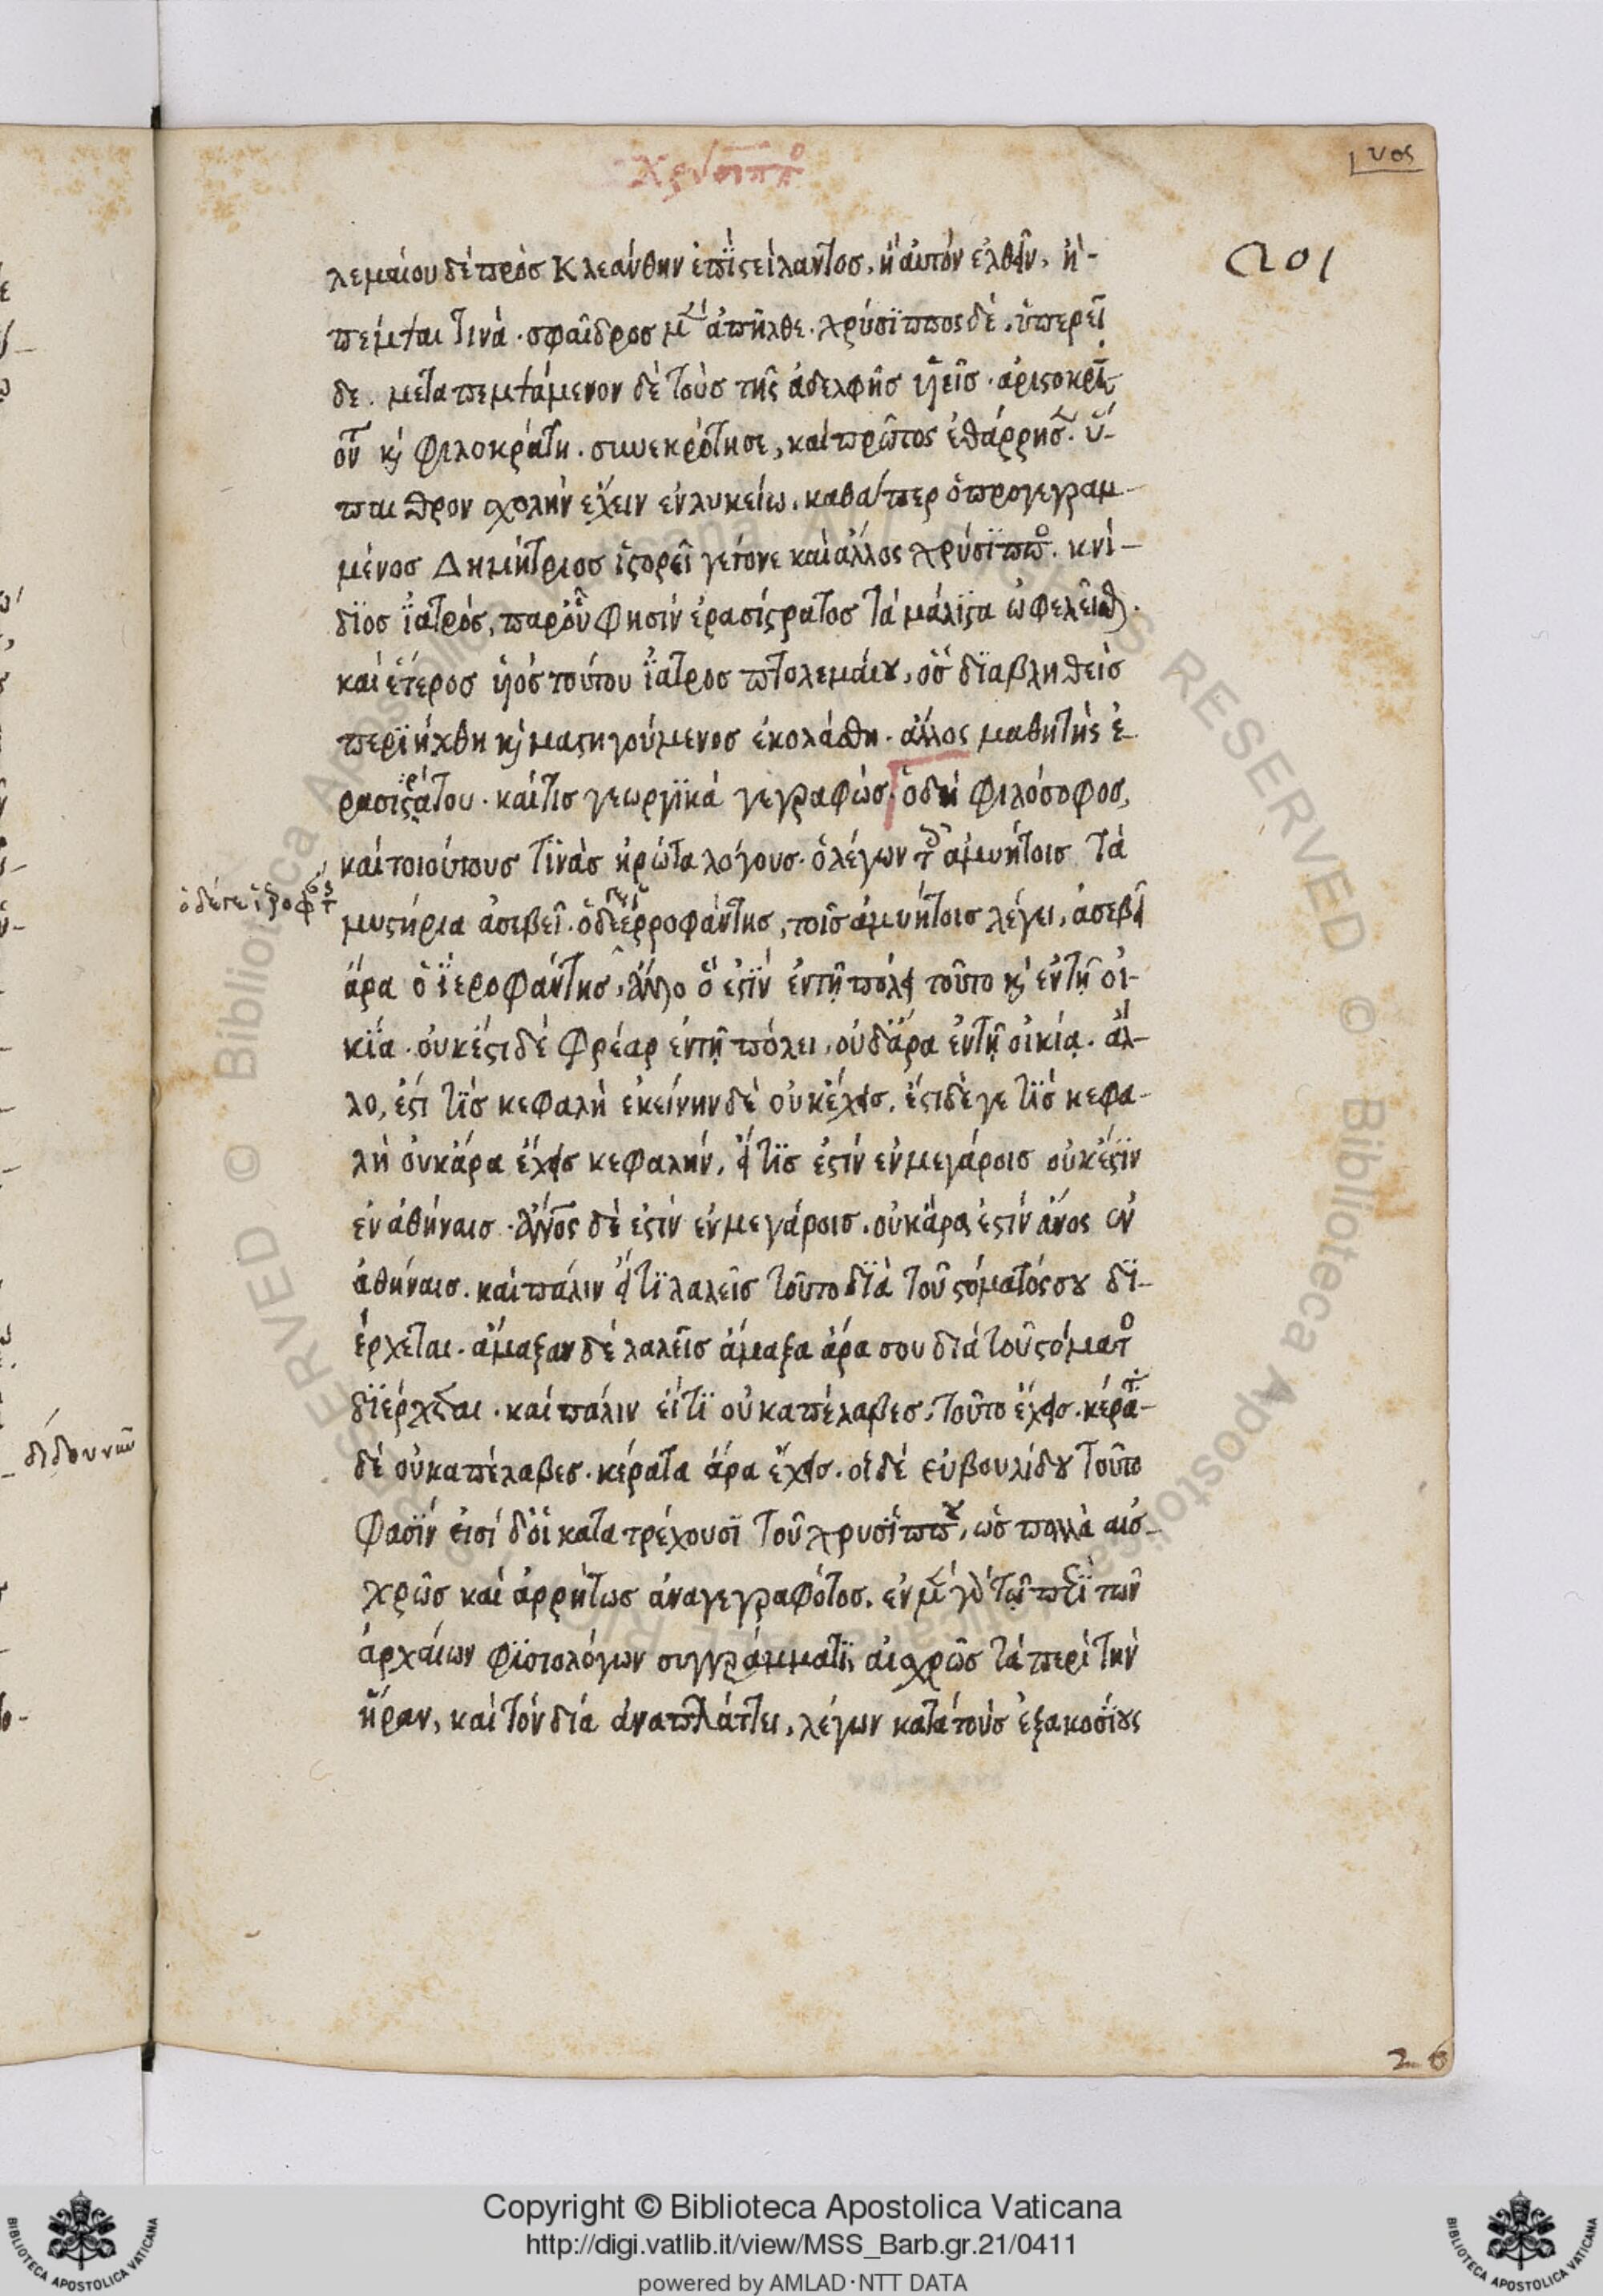 χρυσιππο
υος
201
λεμαίου δὲ πρὸς Κλεάνθην ἐπϊστείλαντος, ἢ αὐτὸν ἐλθεῖν, ἢ-
πέμψαι τινά. σφαῖδρος μὲν ἀπῆλθε. χρύσϊππος δὲ, ὑπερεῖ
δε. μεταπεμψάμενον δὲ τοὺς τῆς ἀδελφῆς ὑιεῖς. ἀριστοκρέ
οντ καὶ φιλοκράτη. συνεκρότησε, καὶ πρῶτος ἐθάρρησ. ὕ-
παιθρον σχολὴν ἔχειν ἐν λυκείω, καθάπερ ὁ προγεγραμ-
μένος Δημήτριος ἱστορεῖ γέγονε καὶ ἄλλος χρύσϊππο. κνί-
δϊος ἰατρός, παρ' οὗ φησιν ἐρασίστρατος τὰ μάλϊστα ὠφελεῖσθ.
καὶ ἕτερος ὑιὸς τούτου ἰατρος πτολεμαίου, ὃς δϊαβληθεὶς
περϊήχθη καὶ μαστιγούμενος ἐκολάσθη. ἄλλος μαθητὴς ἐ-
ρασιστράτου. καί τις γεωργϊκὰ γεγραφώς. ὁ δὴ φιλόσοφος,
καὶ τοιούτους τϊνὰς ἠρώτα λόγους. ὁ λέγων τ ἀμυήτοις τὰ
μυστήρια ἀσεβεῖ. ὁ δέ γε ἱερροφάντης, τοῖς ἀμυήτοις λέγει, ἀσεβεῖ
ὁ δέ γε ἱεροφτ
ἄρα ὁ ϊεροφάντης, ἄλλο ὅ ἐστϊν ἐν τῇ πόλει τοῦτο καὶ ἐν τῇ οἰ-
κϊα. οὐκ ἔστι δὲ φρέαρ ἐν τῇ πόλει, οὐδ' ἄρα ἐν τῇ οἰκίᾳ. ἄλ-
λο, ἔστι τϊς κεφαλὴ ἐκείνην δὲ οὐκ ἔχεις. ἔστι δέ γε τϊς κεφα-
λὴ οὐκ ἄρα ἔχεις κεφαλήν. εἴ τϊς ἐστιν ἐν μεγάροις οὐκ ἔστϊν
ἐν ἀθήναις. ἄνος δὲ ἐστιν ἐν μεγάροις. οὐκ ἄρα ἐστιν ἄνος ἐν
ἀθήναις. καὶ πάλιν εἴ τϊ λαλεῖς τοῦτο δϊὰ τοῦ στόματός σου δϊ-
έρχεται. ἄμαξαν δὲ λαλεῖς ἅμαξα ἄρα σου διὰ τοῦ στόματο
δϊέρχεται. καὶ πάλιν εἴ τϊ οὐκ ἀπέλαβες. τοῦτο ἔχεις. κέρατ-
δὲ οὐκ ἀπέλαβες. κέρατα ἄρα ἔχεις. οἱ δὲ εὐβουλίδου τοῦτο
φασϊν εἰσὶ δ' οἳ κατατρέχουσϊ τοῦ χρυσϊππου, ὡς πολλὰ αἰσ-
χρῶς καὶ ἀρρήτως ἀναγεγραφότος. ἐν μὲν γὰρ τῷ περϊ τῶν
ἀρχαίων φϊσιολόγων συγγράμματϊ, αἰσχρῶς τὰ περὶ τὴν
ἥραν, καὶ τὸν δία ἀναπλάττει, λέγων κατὰ τοὺς ἑξακοσΐους
26
Copyright © Biblioteca Apostolica Vaticana
http://digi.vatlib.it/view/MSS_Barb.gr.21/0411
powered by AMLAD·NTT DATA
BIBLIOTECA APOSTOLICA VATICANA
BIBLIOTECA APOSTOLICA VATICANA